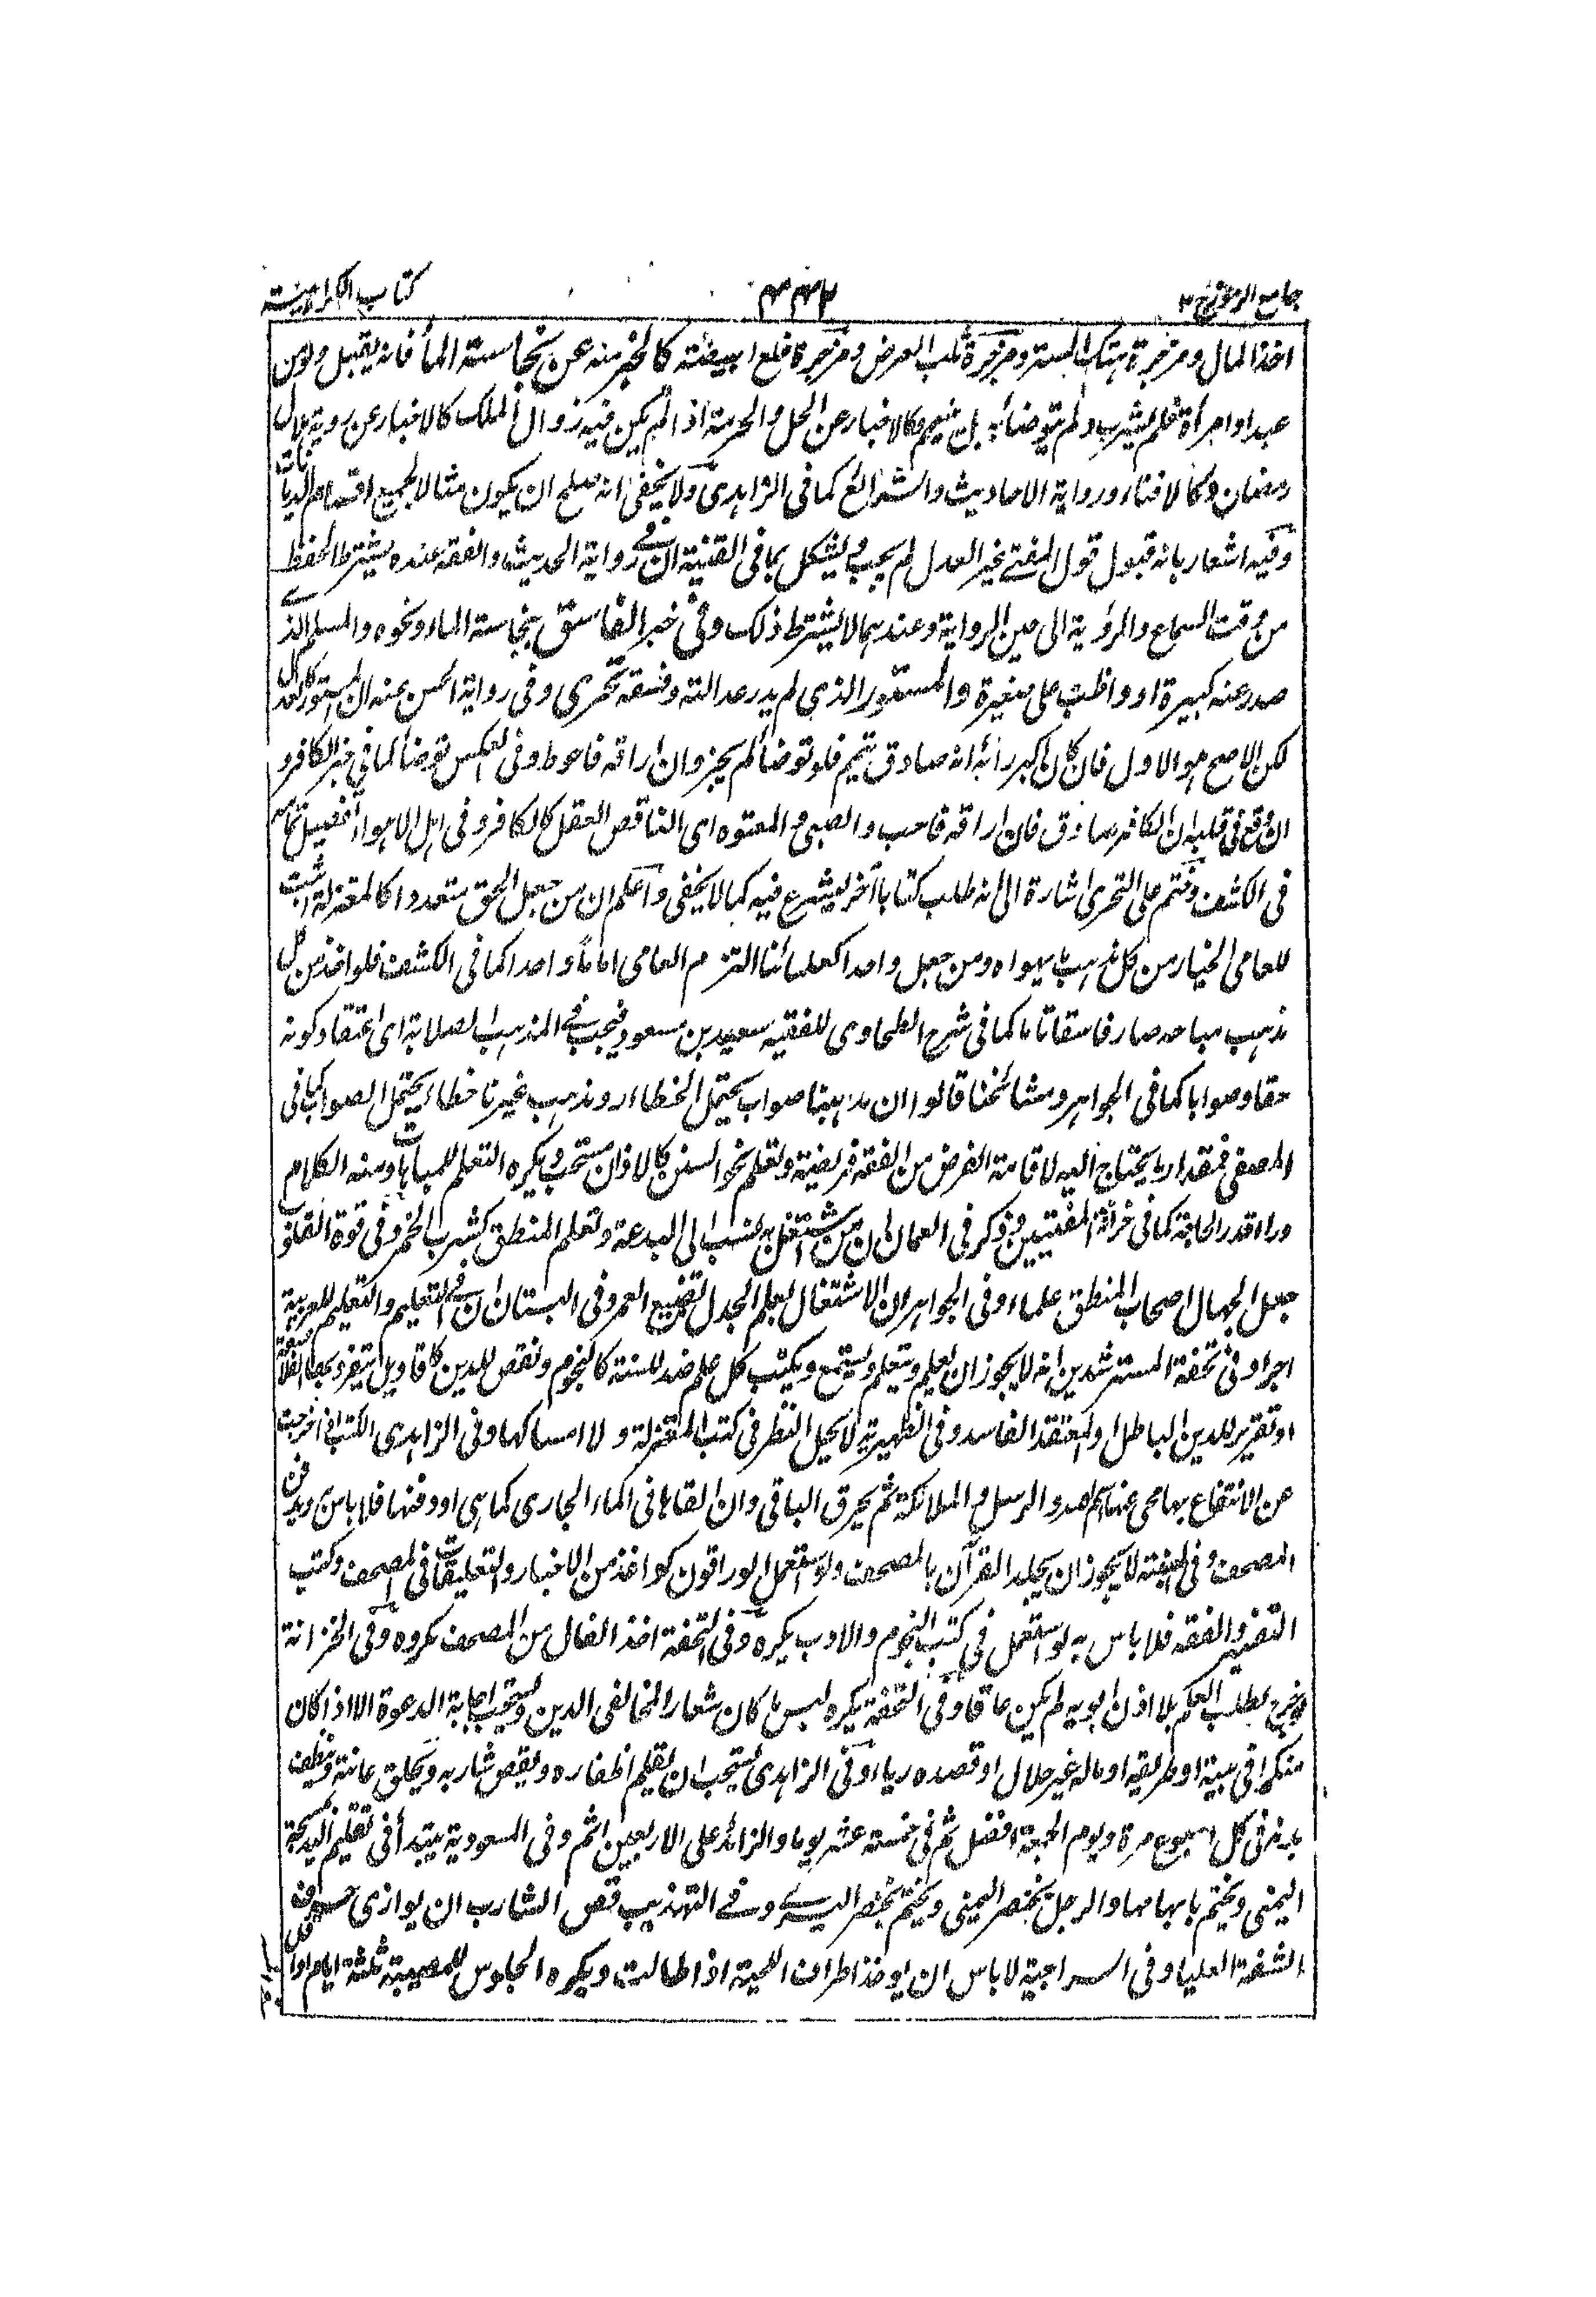 جامع الرموز ج ٣
٤٤٢
كتاب الكراهية
اخذ المال ومزجرة هتك الستر ومزجرة ثلب العرض ومزجرة خلع البيضة كالخبر منه عن نجاسة الماء فانه يقبل ولو من
عبد او امرأة فلم يشرب ولم يتوضأ به بل يتيمم وكالاخبار عن الحل والحرمة اذا لم يكن فيه زوال الملك كالاخبار عن روية هلال
رمضان وكالافتاء ورواية الاحاديث والشرائع كما فى الزاهدى ولا يخفى انه صلح ان يكون مثالا لجميع اقسام الديانات
وفيه اشعار بانه قبول قول المفتى غير العدل لم يجب ويشكل بما فى القنية ان فى رواية الحديث والفقه عنده يشترط الحفظ
من وقت السماع والرؤية الى حين الرواية وعندهما لا يشترط ذلك وفى خبر الفاسق بنجاسة الماء ونحوه والمسلم الذى
صدر عنه كبيرة او واظب على صغيرة والمستور الذى لم يدر عدالته وفسقه تحرى وفى رواية الحسن عنه ان المستور كالعدل
لكن الاصح هو الاول فان كان اكبر رأيه انه صادق تيمم فلو توضأ لم يجز وان اراقه فاحوط وفى العكس توضأ كما فى خبر الكافر و
ان وقع فى قلبه ان الكافر صادق فان اراقه فاحب والصبى والمعتوه اى الناقص العقل كالكافر وفى اهل الاهواء تفصيل تمامه
فى الكشف وختم على التحرى اشارة الى انه طلب كتابا آخر ليشرع فيه كما لا يخفى واعلم ان من جعل الحق متعددا كالمعتزلة اثبت
للعامى الخيار من كل مذهب ما يهواه ومن جعل واحدا كعلمائنا التزم العامى اماما واحدا كما فى الكشف فلو اخذ من كل
مذهب مباحه صار فاسقا تاما كما فى شرح الطحاوى للفقيه سعيد بن مسعود فيجب فى المذهب الصلابة اى اعتقاد كونه
حقا وصوابا كما فى الجواهر ومشائخنا قالوا ان مذهبنا صواب يحتمل الخطاء ومذهب غيرنا خطاء يحتمل الصواب كما فى
المصفى فمقدار ما يحتاج اليه لاقامة الفرض من الفقه فريضة وتعلم نحو السنن كالاذان مستحب ويكره التعلم للمباهات ومنه الكلام
وراء قدر الحاجة كما فى خزانة المفتيين وذكر فى العمال ان من اشتغل به ينسب الى البدعة وتعلم المنطق كشرب الخمر وفى قوة القلوب
جعل الجهال اصحاب المنطق علماء وفى الجواهر ان الاشتغال بعلم الجدل تضييع العمر وفى البستان ان فى التعليم والتعلم للعربية
اجرا وفى تحفة المسترشدين انه لا يجوز ان يعلم ويتعلم ويستمع ويكتب كل علم ضد للسنة كالنجوم ونقص للدين كاقاويل يتفرد بها الفلاسفة
او تقرير للدين الباطل او لمعتقد الفاسد وفى الظهيرية لا يحل النظر فى كتب المعتزلة ولا امساكها وفى الزاهدى الكتب اذا خرجت
عن الانتفاع بها محى عنها اسم الله والرسل والملائكة ثم يحرق الباقى وان القاها فى الماء الجارى كما هى او دفنها فلا باس به ويدفن
المصحف وفى لا يجوز ان يجلد القرآن بالمصحف ولو استعمل الوراقون كواغذ من الاخبار والتعليقات فى المصحف وكتب
التفسير والفقه فلا باس به لو استعمل فى كتب النجوم والادب يكره وفى التحفة اخذ الفال من المصحف مكروه وفى الخزانة
ويخرج لطلب العلم بلا اذن ابويه لم يكن عاقا وفى التحفة يكره لبس ما كان شعارا لمخالفى الدين ويستحب اجابة الدعوة الا اذا كان
منكرا فى بيته او طريقه او ماله غير حلال او قصده رياء وفى الزاهدى يستحب ان يقلم اظفاره ويقص شاربه ويحلق عانته وينظف
بدنه فى كل اسبوع مرة ويوم الجمعة افضل ثم فى خمسة عشر يوما والزائد على الاربعين اثم وفى المسعودية يبتدأ فى تقليم اليد بمسبحة
اليمنى ويختم بابهامها والرجل بخنصر اليمنى ويختم بخنصر اليسرى وفى التهذيب قص الشارب ان يوازى حرف
الشفة العليا وفى السراجية لا باس ان يوخذ اطراف اللحية اذا طالت ويكره الجلوس للمصيبة ثلثة ايام او اقل